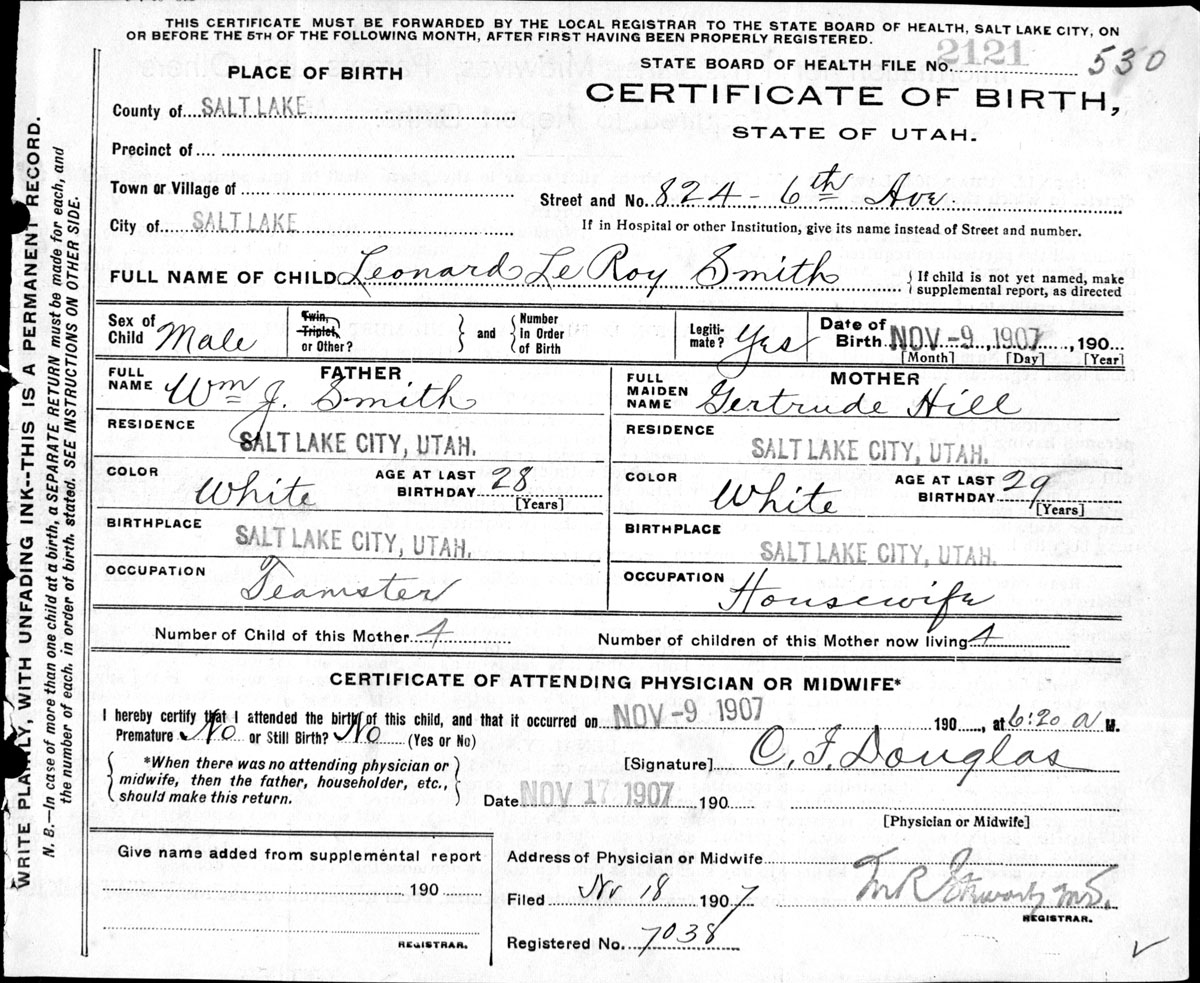 THIS CERTIFICATE MUST BE FORWARDED BY THE LOCAL REGISTRAR TO THE STATE BOARD OF HEALTH, SALT LAKE CITY, ON
OR BEFORE THE 5TH OF THE FOLLOWING MONTH, AFTER FIRST HAVING BEEN PROPERLY REGISTERED.
PLACE OF BIRTH
STATE BOARD OF HEALTH FILE No. 2121 530
County of SALT LAKE
CERTIFICATE OF BIRTH,
STATE OF UTAH.
Precinct of
Town or Village of
Street and No. 824 - 6th Ave.
City of SALT LAKE
If in Hospital or other Institution, give its name instead of Street and number.
FULL NAME OF CHILD Leonard Le Roy Smith
{ If child is not yet named, make
supplemental report, as directed
Sex of Child Male
Twin, Triplet, or Other?
and { Number In Order of Birth
Legiti-mate? Yes
Date of Birth NOV -9, 1907, 190
[Month] [Day] [Year]
FATHER
FULL NAME Wm J. Smith
MOTHER
FULL MAIDEN NAME Gertrude Hill
RESIDENCE SALT LAKE CITY, UTAH.
RESIDENCE SALT LAKE CITY, UTAH.
COLOR White AGE AT LAST BIRTHDAY 28 [Years]
COLOR White AGE AT LAST BIRTHDAY 29 [Years]
BIRTHPLACE SALT LAKE CITY, UTAH.
BIRTHPLACE SALT LAKE CITY, UTAH.
OCCUPATION Teamster
OCCUPATION Housewife
Number of Child of this Mother 4
Number of children of this Mother now living 4
CERTIFICATE OF ATTENDING PHYSICIAN OR MIDWIFE*
I hereby certify that I attended the birth of this child, and that it occurred on NOV -9 1907 190, at 6:20 a M.
Premature No or Still Birth? No (Yes or No)
{ *When there was no attending physician or
midwife, then the father, householder, etc.,
should make this return. }
[Signature] C. F. Douglas
Date NOV 17 1907 190
[Physician or Midwife]
Give name added from supplemental report
190
REGISTRAR.
Address of Physician or Midwife
Filed Nv 18 1907
REGISTRAR.
Registered No. 7038
WRITE PLAINLY, WITH UNFADING INK--THIS IS A PERMANENT RECORD.
N. B.—In case of more than one child at a birth, a SEPARATE RETURN must be made for each, and
the number of each, in order of birth, stated. SEE INSTRUCTIONS ON OTHER SIDE.